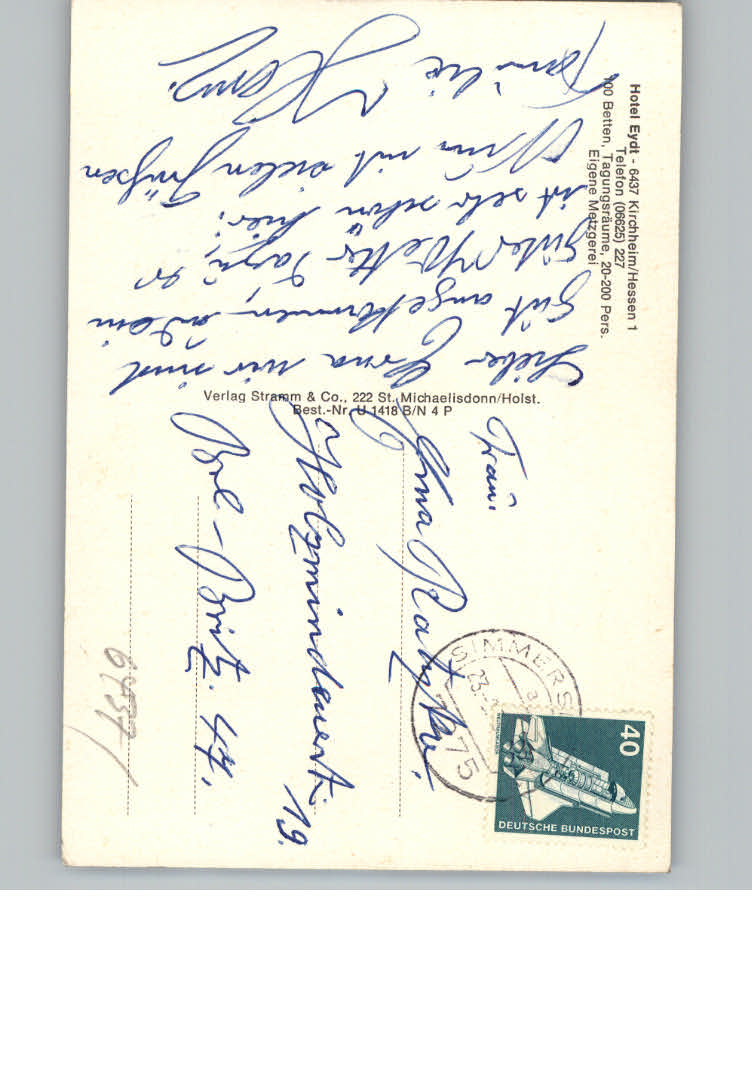 Hotel Eydt - 6437 Kirchheim/Hessen 1
Telefon (06625) 227
100 Betten, Tagungsräume, 20-200 Pers.
Eigene Metzgerei
Liebe Erna wir sind
gut angekommen,
gutes Wetter
ist sehr schön hier.
Nun mit vielen Grüßen
Familie
Verlag Stramm & Co., 222 St. Michaelisdonn/Holst.
Best.-Nr. U 1418 B/N 4 P
Frau.
Erna
Holzmindenerst. 19.
Bl - Britz. 47.
6437
SIMMERS
23.
75
40
DEUTSCHE BUNDESPOST